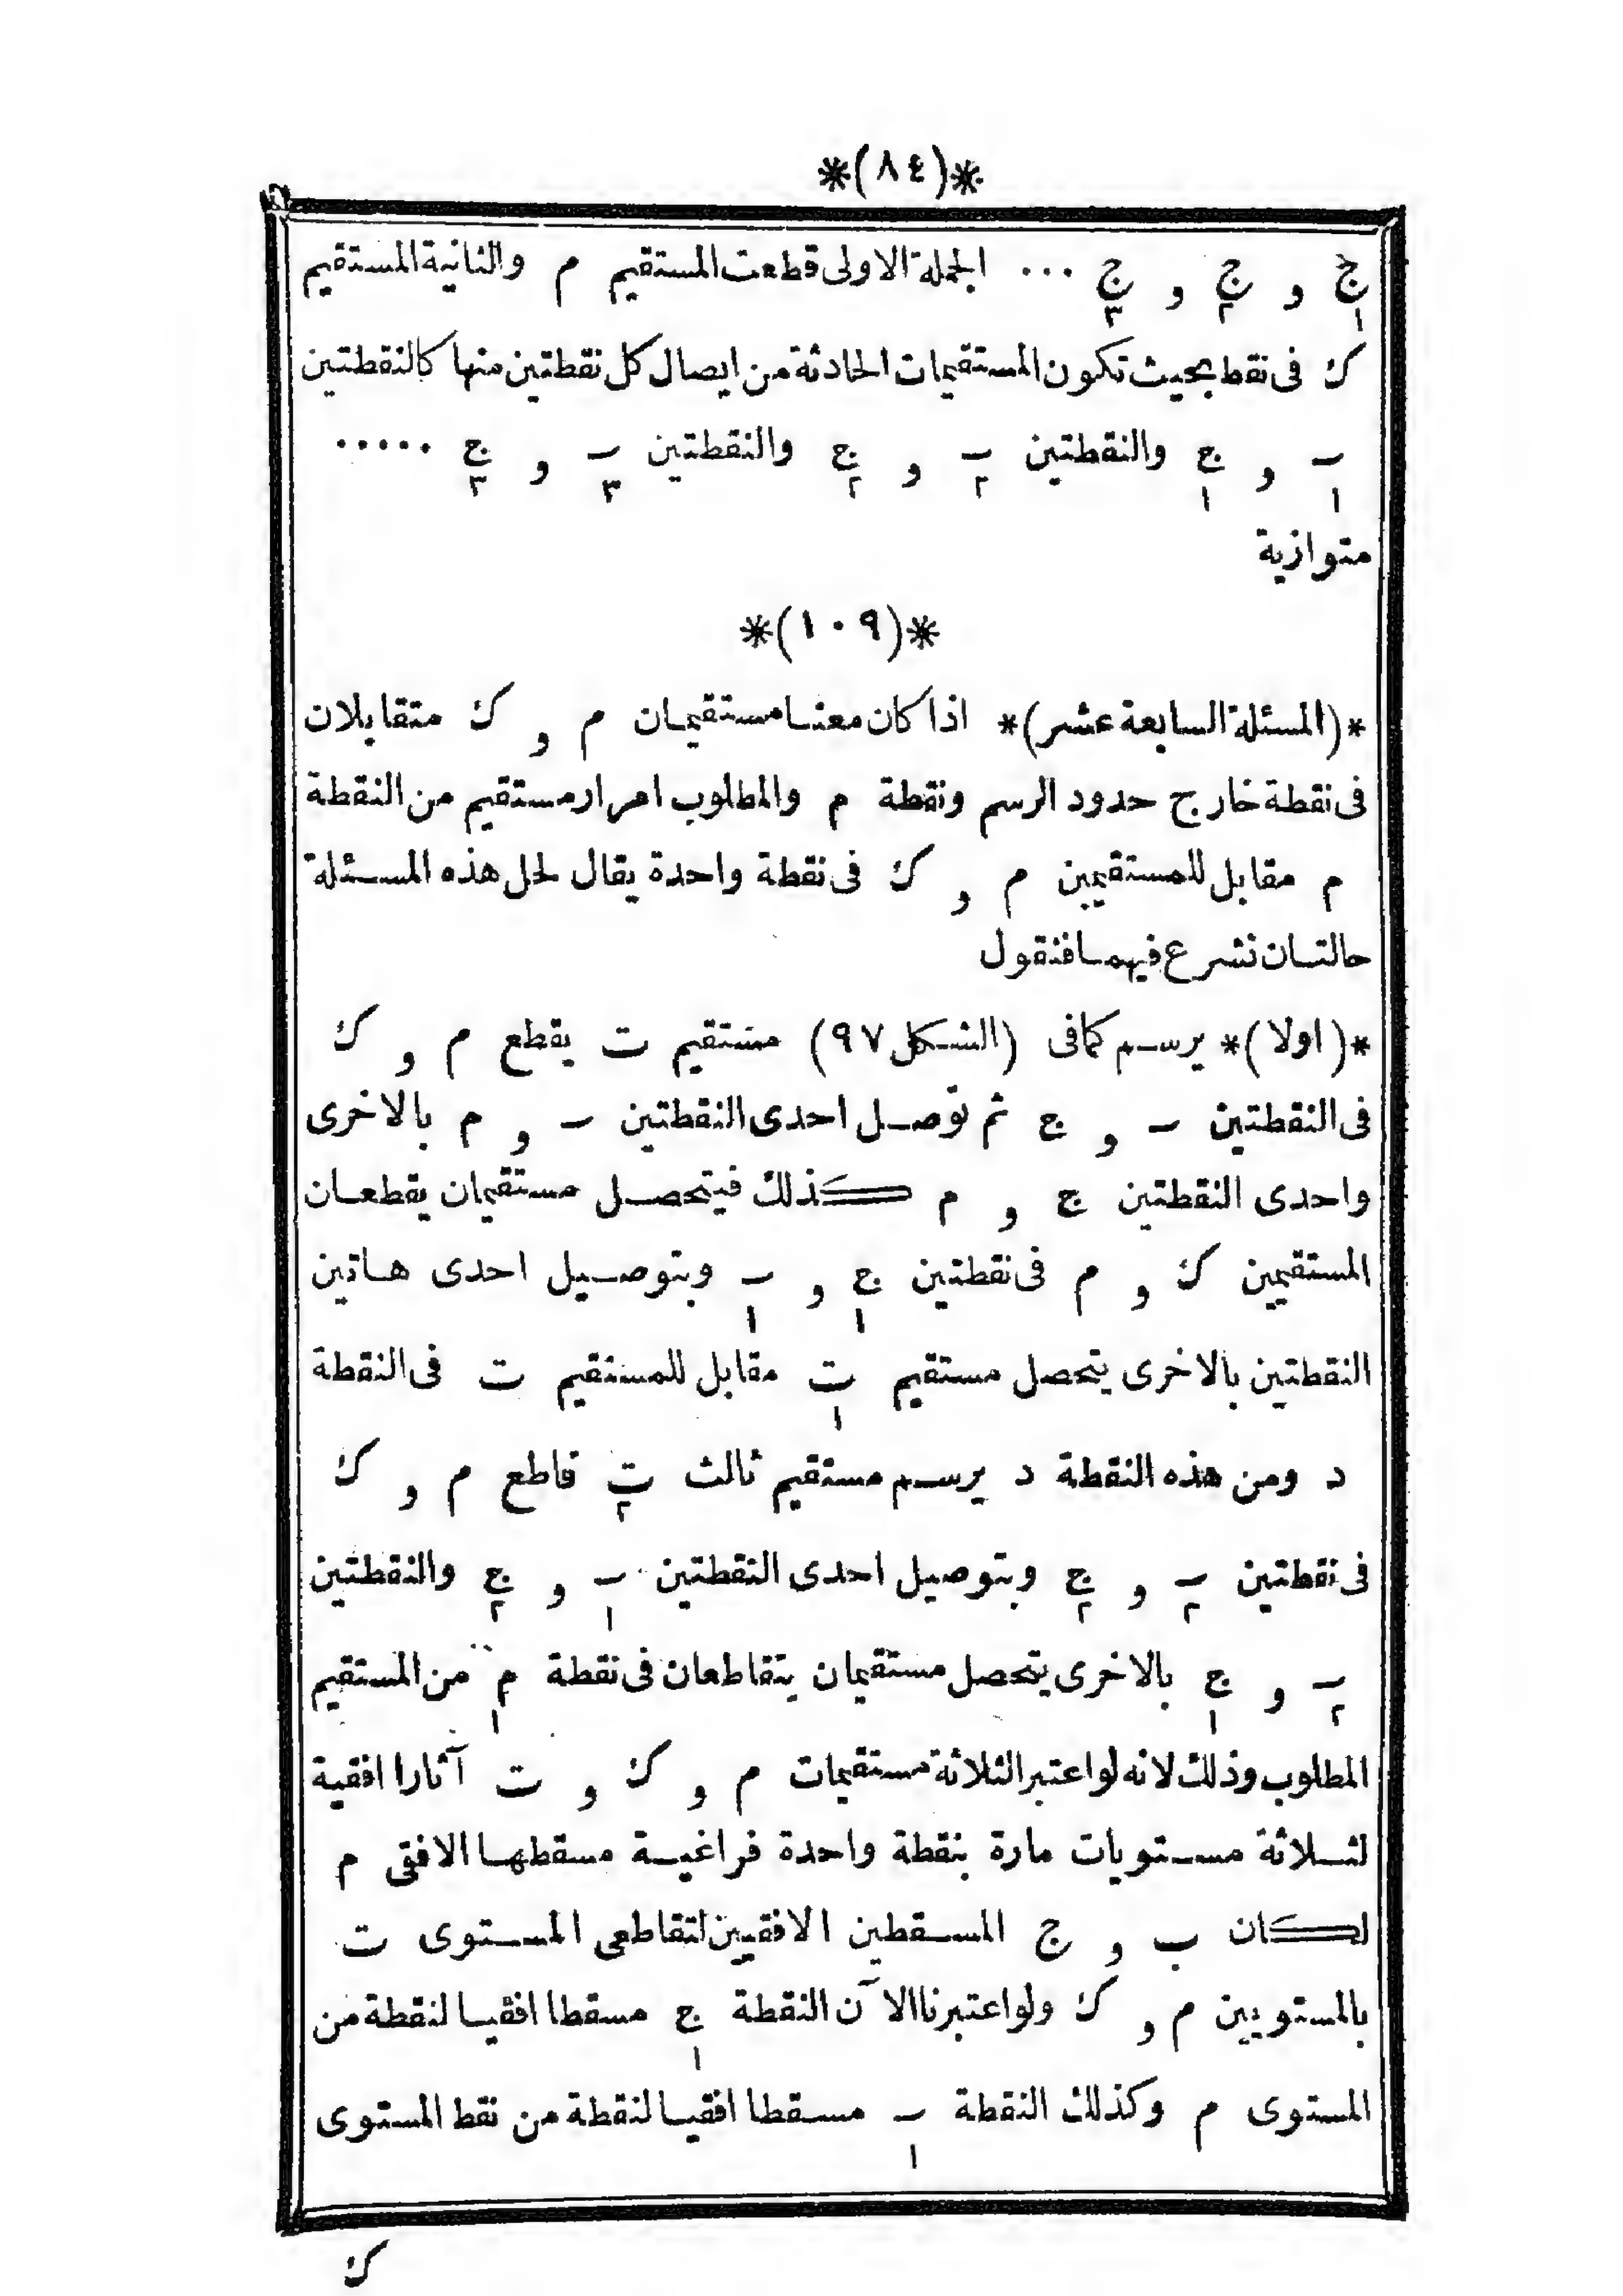 *(٨٤)*
ج١ و ج٢ و ج٣ ... الجملة الاولى قطعت المستقيم م والثانية المستقيم
ك فى نقط بحيث تكون المستقيمات الحادثة من ايصال كل نقطتين منها كالنقطتين
ب١ و ج١ والنقطتين ب٢ و ج٢ والنقطتين ب٣ و ج٣ .....
متوازية
*(١٠٩)*
*(المسئلة السابعة عشر)* اذا كان معنا مستقيمان م و ك متقابلان
فى نقطة خارج حدود الرسم ونقطة م والمطلوب امرار مستقيم من النقطة
م مقابل للمستقيمين م و ك فى نقطة واحدة يقال لحل هذه المسئلة
حالتان نشرع فيهما فنقول
*(اولا)* يرسم كمافى (الشكل ٩٧) مستقيم ت يقطع م و ك
فى النقطتين ب و ج ثم نوصل احدى النقطتين ب و م بالاخرى
واحدى النقطتين ج و م كذلك فيتحصل مستقيمان يقطعان
المستقيمين ك و م فى نقطتين ج١ و ب١ وبتوصيل احدى هاتين
النقطتين بالاخرى يتحصل مستقيم ت١ مقابل للمستقيم ت فى النقطة
د ومن هذه النقطة د يرسم مستقيم ثالث ت٢ قاطع م و ك
فى نقطتين ب٢ و ج٢ وبتوصيل احدى النقطتين ب١ و ج٢ والنقطتين
ب٢ و ج١ بالاخرى يتحصل مستقيمان يتقاطعان فى نقطة م١ من المستقيم
المطلوب وذلك لانه لواعتبر الثلاثة مستقيمات م و ك و ت آثارا افقية
لثلاثة مستويات مارة بنقطة واحدة فراغية مسقطها الافقى م
لكان ب و ج المسقطين الافقيين لتقاطعى المستوى ت
بالمستويين م و ك ولواعتبرنا الآن النقطة ج١ مسقطا افقيا لنقطة من
المستوى م وكذلك النقطة ب١ مسقطا افقيا لنقطة من نقط المستوى
ك